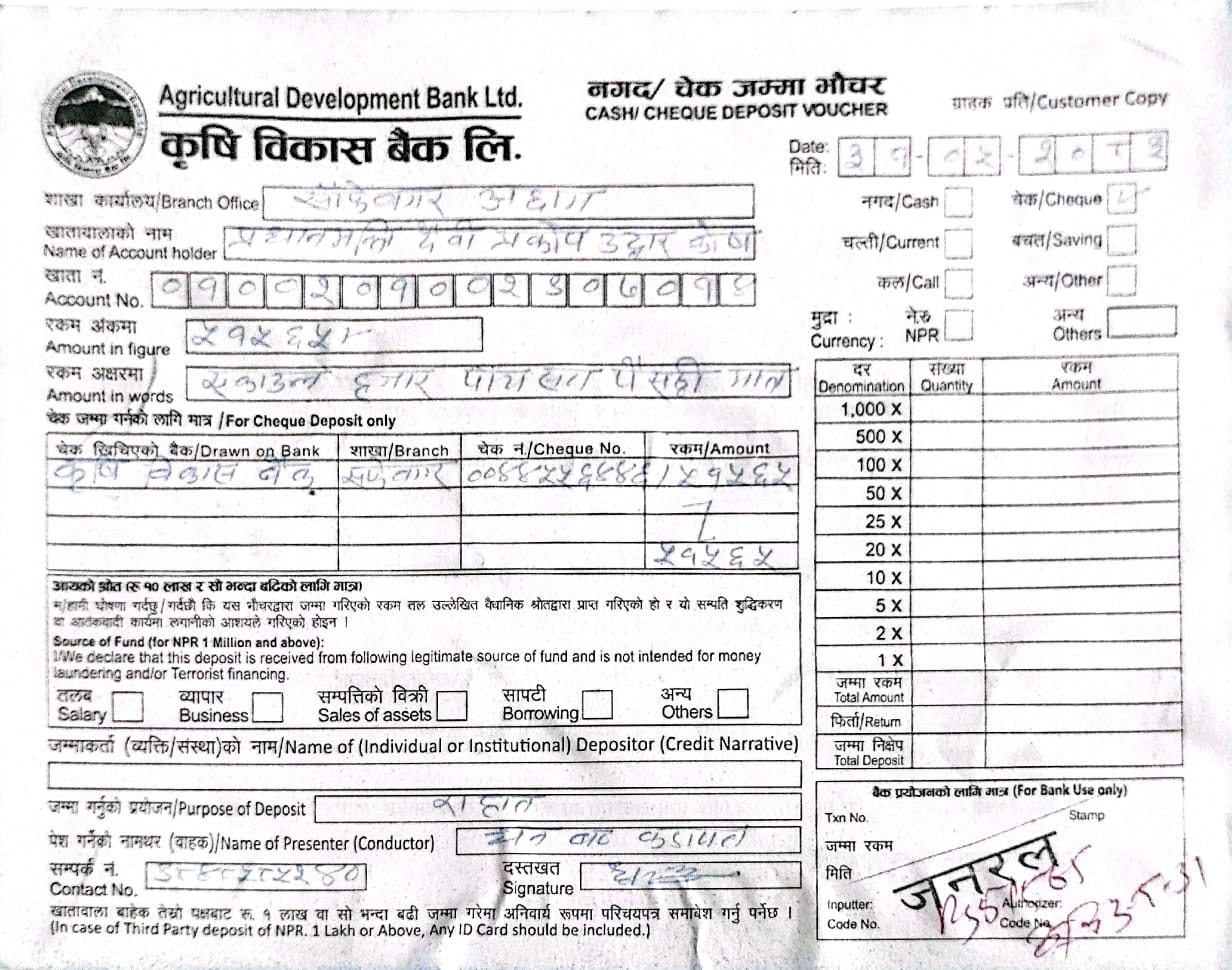 Agricultural Development Bank Ltd.
कृषि विकास बैंक लि.
नगद/ चेक जम्मा भौचर
CASH/ CHEQUE DEPOSIT VOUCHER
ग्राहक प्रति/Customer Copy
Date:
मिति:
शाखा कार्यालय/Branch Office साँफेबगर अछाम
खातावालाको नाम
Name of Account holder दैवी प्रकोप उद्धार कोष
खाता नं.
Account No.
रकम अंकमा
Amount in figure ५१५६५/-
रकम अक्षरमा
Amount in words एकाउन्न हजार पाँच सय पैसठ्ठी मात्र
नगद/Cash चेक/Cheque
चल्ती/Current बचत/Saving
कल/Call अन्य/Other
मुद्रा : ने.रु अन्य
Currency : NPR Others
चेक जम्मा गर्नको लागि मात्र /For Cheque Deposit only
चेक खिचिएको बैंक/Drawn on Bank शाखा/Branch चेक नं./Cheque No. रकम/Amount
कृषि विकास बैंक ५१५६५
५१५६५
दर संख्या रकम
Denomination Quantity Amount
1,000 X
500 X
100 X
50 X
25 X
20 X
10 X
5 X
2 X
1 X
जम्मा रकम
Total Amount
फिर्ता/Return
जम्मा निक्षेप
Total Deposit
आयको श्रोत (रु १० लाख र सो भन्दा बढिको लागि मात्र)
म/हामी घोषणा गर्दछु/गर्दछौं कि यस भौचरद्वारा जम्मा गरिएको रकम तल उल्लेखित वैधानिक श्रोतद्वारा प्राप्त गरिएको हो र यो सम्पति शुद्धिकरण
वा आतंकवादी कार्यमा लगानीको आशयले गरिएको होइन ।
Source of Fund (for NPR 1 Million and above):
I/We declare that this deposit is received from following legitimate source of fund and is not intended for money
laundering and/or Terrorist financing.
तलब व्यापार सम्पत्तिको विक्री सापटी अन्य
Salary Business Sales of assets Borrowing Others
जम्माकर्ता (व्यक्ति/संस्था)को नाम/Name of (Individual or Institutional) Depositor (Credit Narrative)
जम्मा गर्नुको प्रयोजन/Purpose of Deposit
पेश गर्नेको नामथर (वाहक)/Name of Presenter (Conductor)
सम्पर्क नं.
Contact No.
दस्तखत
Signature
खातावाला बाहेक तेस्रो पक्षबाट रु. १ लाख वा सो भन्दा बढी जम्मा गरेमा अनिवार्य रूपमा परिचयपत्र समावेश गर्नु पर्नेछ ।
(In case of Third Party deposit of NPR. 1 Lakh or Above, Any ID Card should be included.)
बैंक प्रयोजनको लागि मात्र (For Bank Use only)
Txn No. Stamp
जम्मा रकम
मिति
जनरल
Inputter: Authorizer:
Code No. Code No.